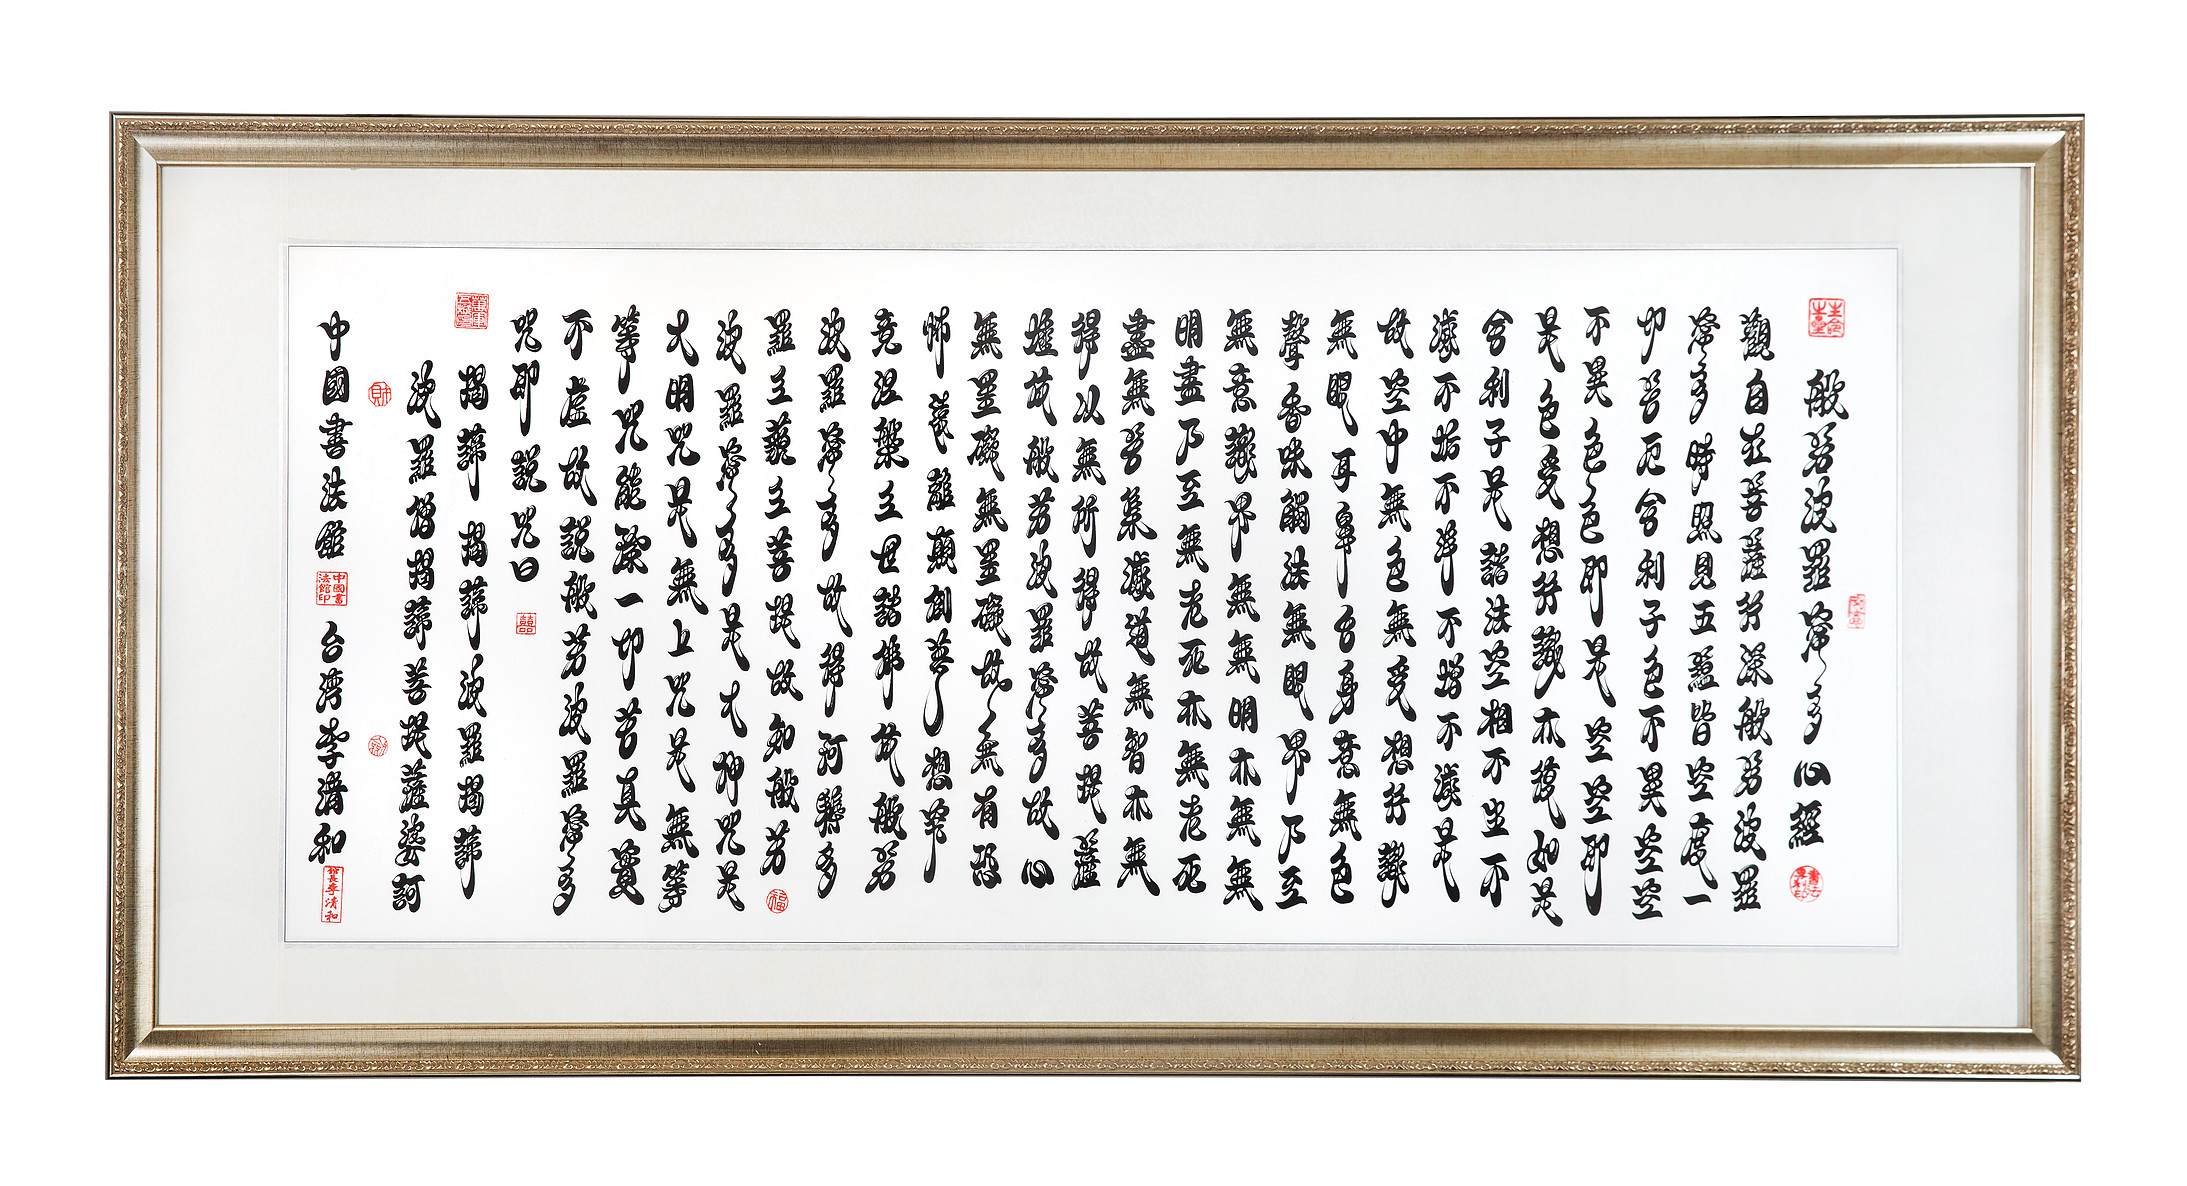 般若波羅蜜多心經
觀自在菩薩行深般若波羅
蜜多時照見五蘊皆空度一
切苦厄舍利子色不異空空
不異色色即是空空即
是色受想行識亦復如是
舍利子是諸法空相不生不
滅不垢不淨不增不減是
故空中無色無受想行識
無眼耳鼻舌身意無色
聲香味觸法無眼界乃至
無意識界無無明亦無無
明盡乃至無老死亦無老死
盡無苦集滅道無智亦無
得以無所得故菩提薩
埵依般若波羅蜜多故心
無罣礙無罣礙故無有恐
怖遠離顛倒夢想究
竟涅槃三世諸佛依般若
波羅蜜多故得阿耨多
羅三藐三菩提故知般若
福
波羅蜜多是大神咒是
大明咒是無上咒是無等
等咒能除一切苦真實
不虛故說般若波羅蜜多
咒即說咒曰
囍
揭諦揭諦波羅揭諦
波羅僧揭諦菩提薩婆訶
財
中國書法館
中國書法館印
台灣李清和
館長李清和